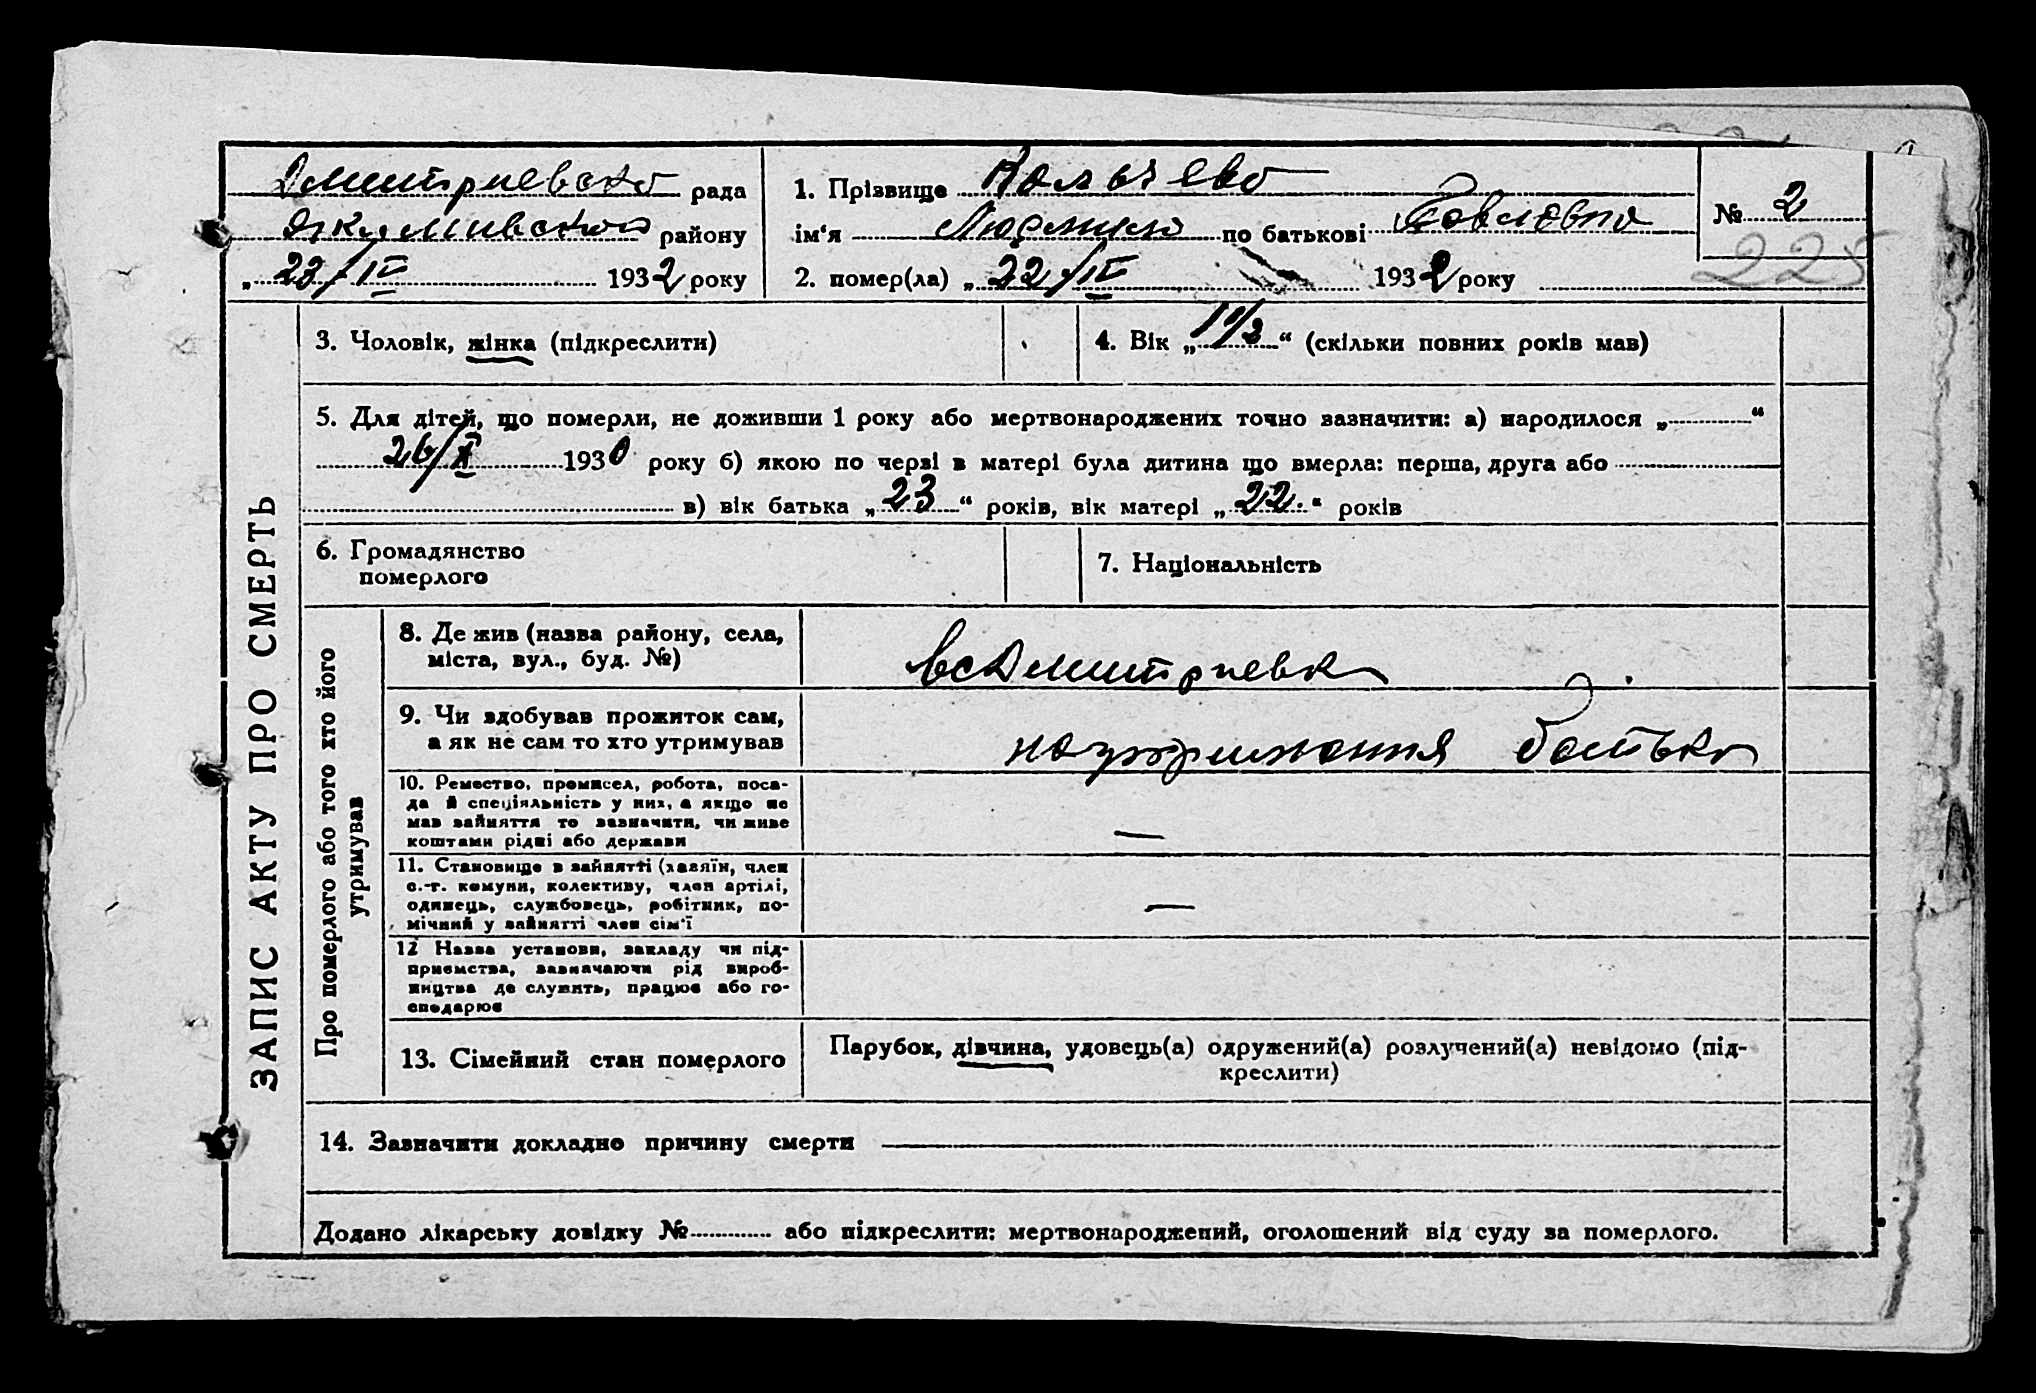 Дмитриевска рада
Якимивского району
„ 23/IV 1932 року
1. Прізвище Кольчева
ім‘я Людмила по батькові Павловна
2. помер(ла) „ 22/IV 1932 року
№ 2
225
ЗАПИС АКТУ ПРО СМЕРТЬ
3. Чоловік, жінка (підкреслити)
4. Вік „ 1 1/2 “ (скільки повних років мав)
5. Для дітей, що померли, не доживши 1 року або мертвонароджених точно зазначити: а) народилося „ “
26/X 1930 року б) якою по черзі в матері була дитина що вмерла: перша, друга або
в) вік батька „ 23 “ років, вік матері „ 22. “ років
6. Громадянство
померлого
7. Національність
Про померлого або того хто його
утримував
8. Де жив (назва району, села,
міста, вул., буд. №)
вс Дмитриевка
9. Чи здобував прожиток сам,
а як не сам то хто утримував
на утримання батька
10. Ремество, промисел, робота, поса-
да й спеціяльність у них, а якщо не
мав зайняття то зазначити, чи живе
коштами рідні або держави
—
11. Становище в зайнятті (хазяїн, член
с.-г. комуни, колективу, член артілі,
одинець, службовець, робітник, по-
мічний у зайнятті член сім‘ї
—
12 Назва установи, закладу чи під-
приємства, зазначаючи рід вироб-
ництва де служить, працює або го-
сподарює
13. Сімейний стан померлого
Парубок, дівчина, удовець(а) одружений(а) розлучений(а) невідомо (під-
креслити)
14. Зазначити докладно причину смерти
Додано лікарську довідку № або підкреслити: мертвонароджений, оголошений від суду за померлого.